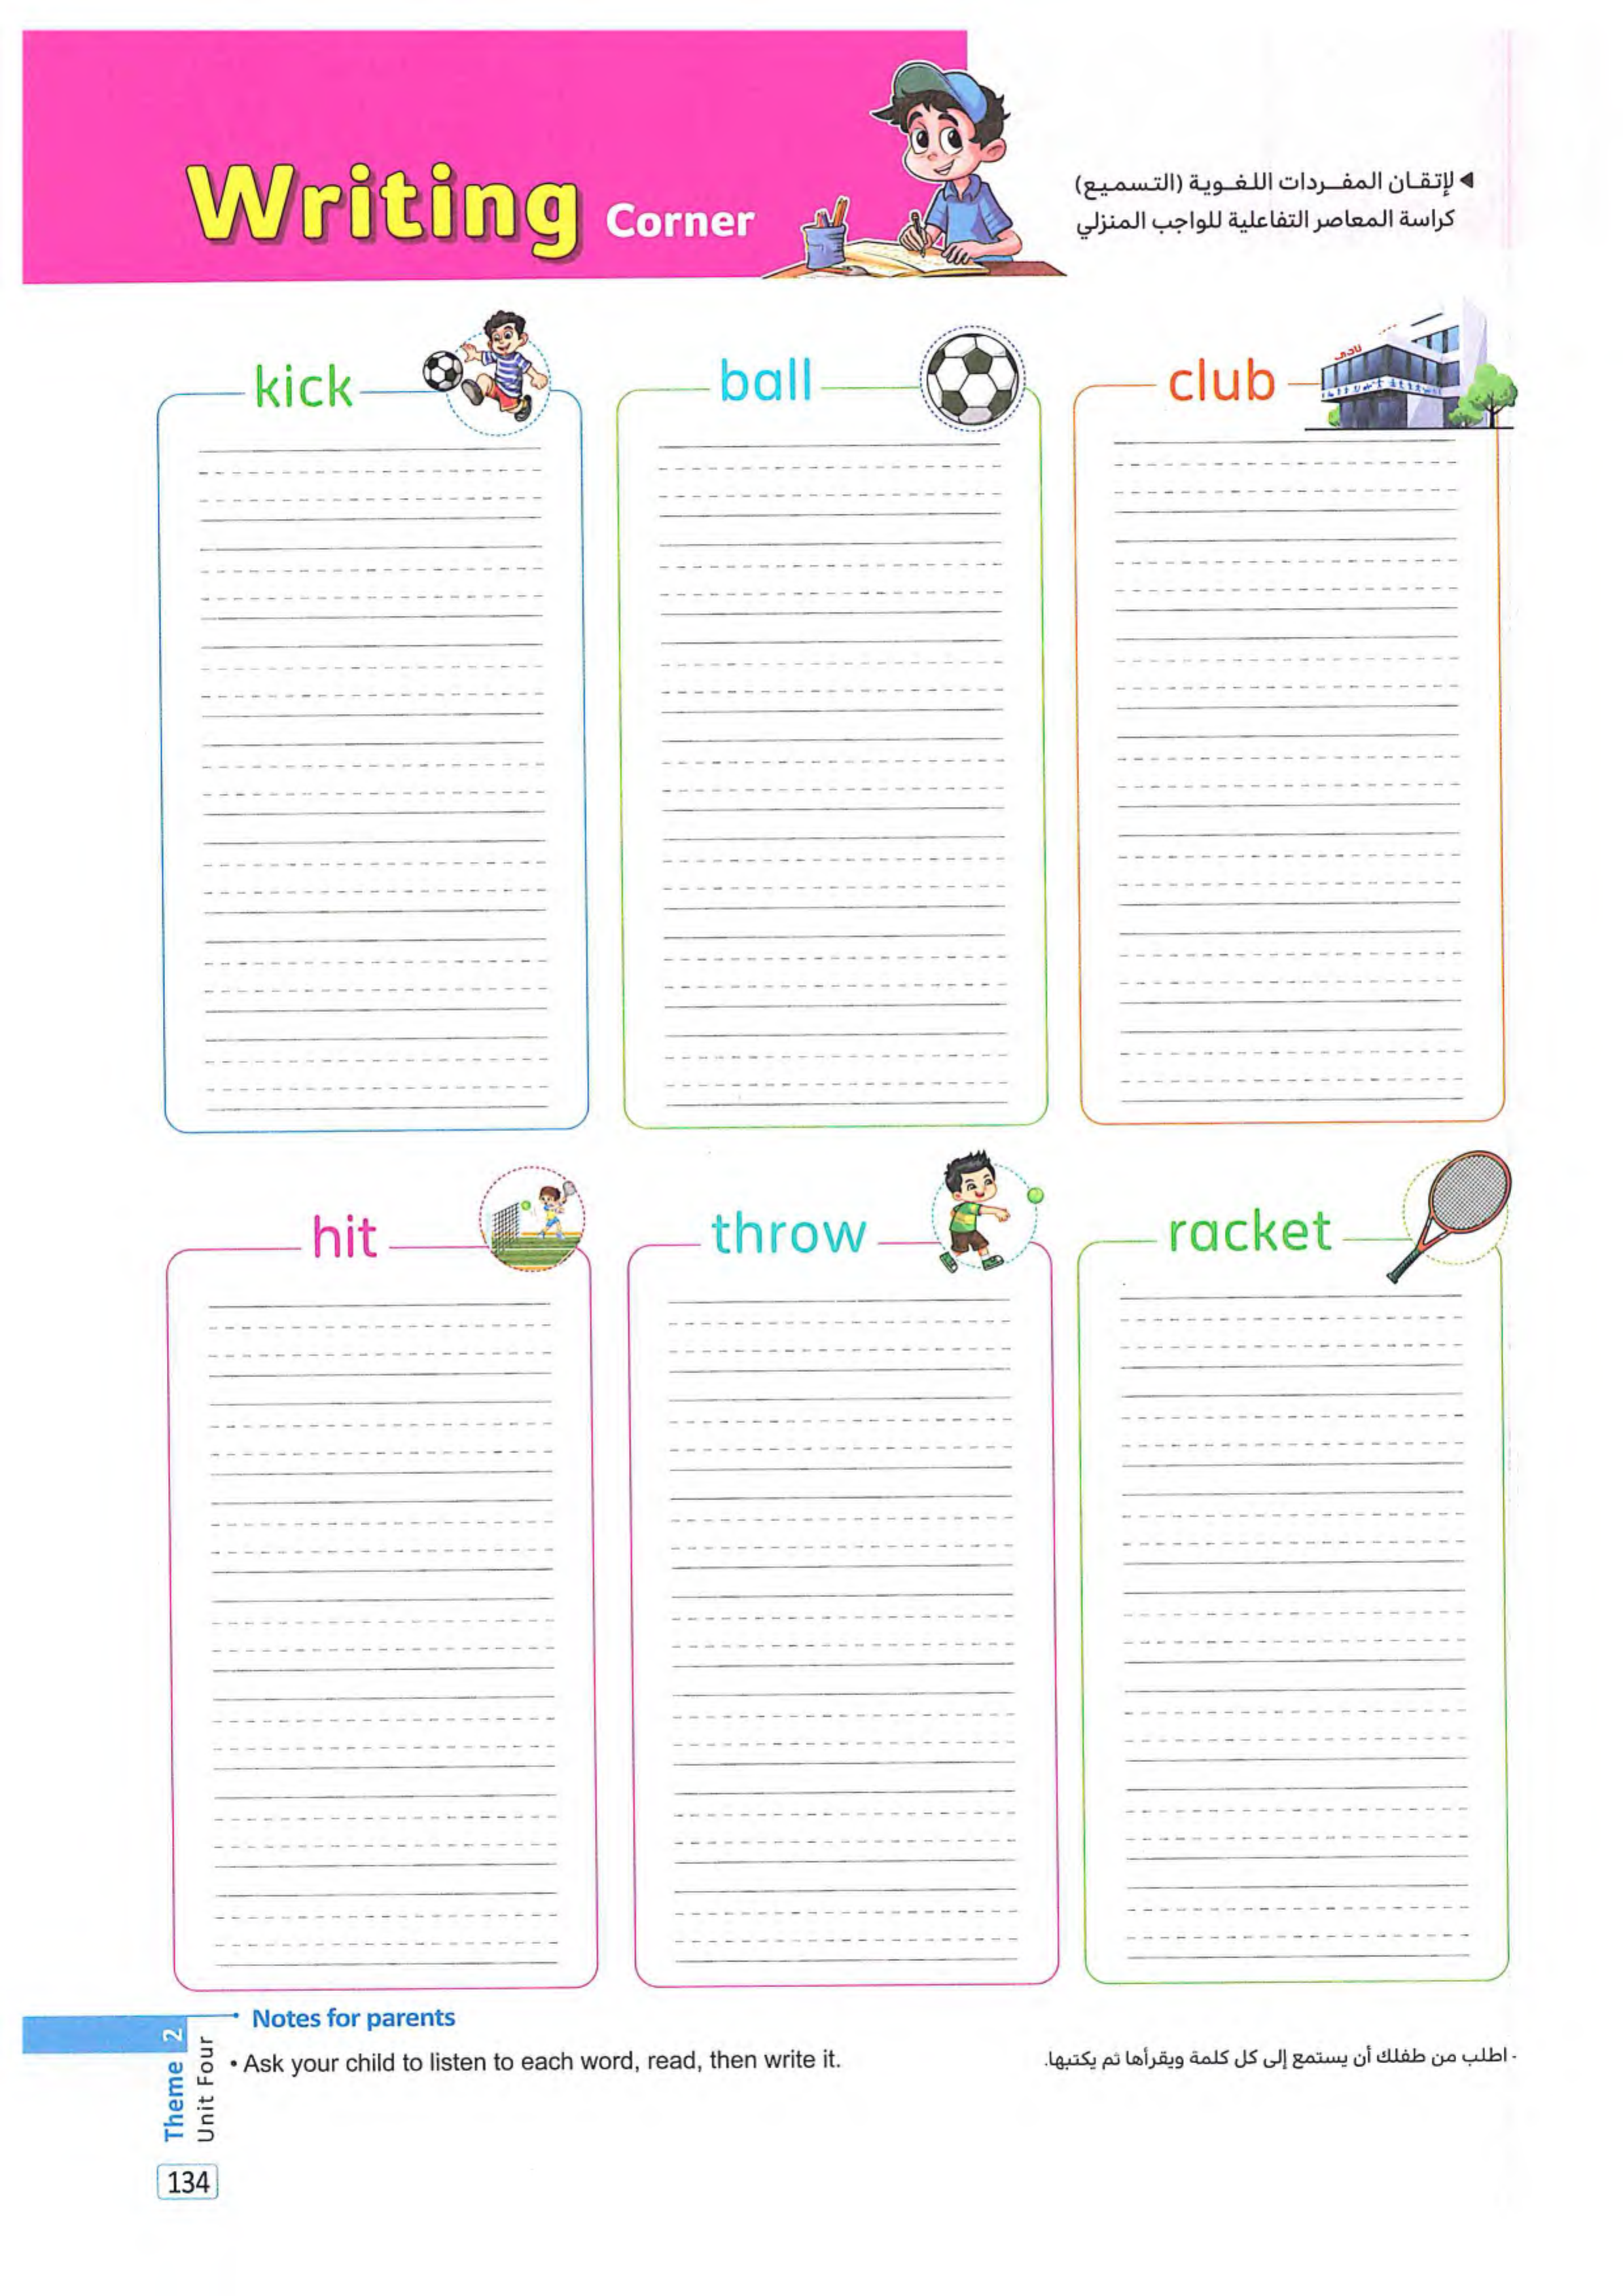 Writing Corner
◄ لإتقـان المفــردات اللـغــوية (التسميع)
كراسة المعاصر التفاعلية للواجب المنزلي
kick
ball
club
نادى
hit
throw
racket
Notes for parents
• Ask your child to listen to each word, read, then write it.
- اطلب من طفلك أن يستمع إلى كل كلمة ويقرأها ثم يكتبها.
Theme 2
Unit Four
134